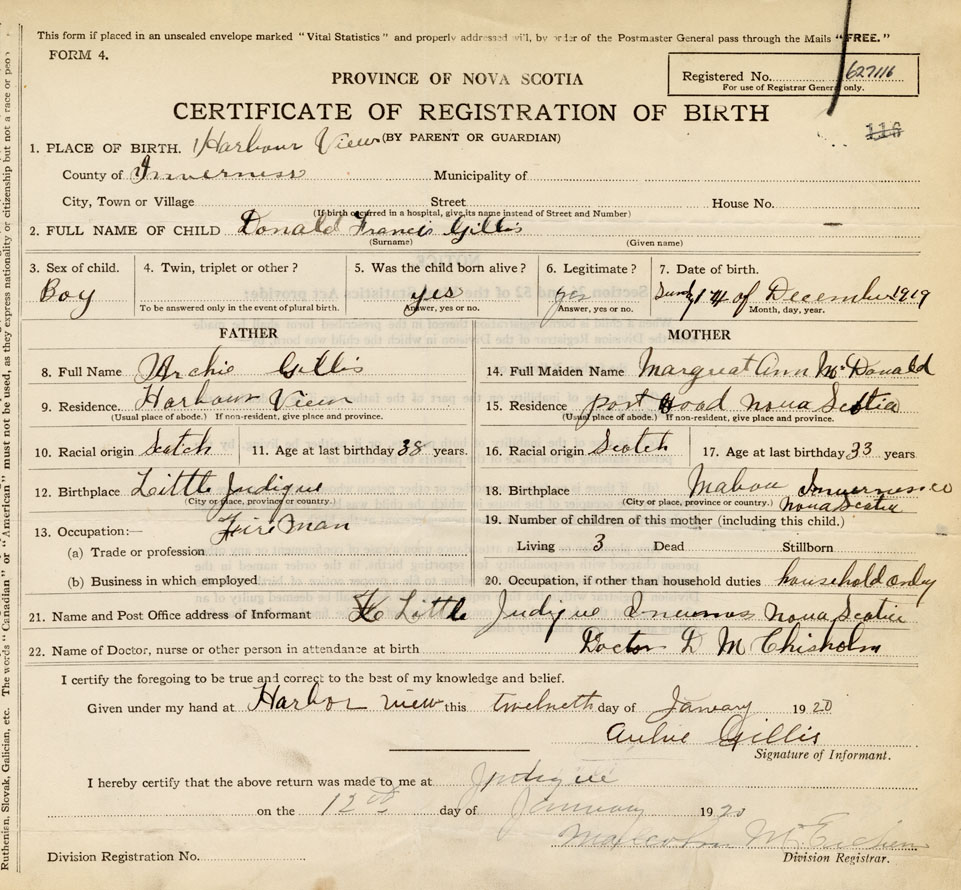 This form if placed in an unsealed envelope marked "Vital Statistics" and properly addressed will, by order of the Postmaster General pass through the Mails "FREE."
FORM 4.
PROVINCE OF NOVA SCOTIA
Registered No. 627116
For use of Registrar General only.
CERTIFICATE OF REGISTRATION OF BIRTH
116
(BY PARENT OR GUARDIAN)
1. PLACE OF BIRTH. Harbour View
County of Inverness Municipality of
City, Town or Village Street House No.
(If birth occurred in a hospital, give its name instead of Street and Number)
2. FULL NAME OF CHILD Donald Francis Gillis
(Surname) (Given name)
3. Sex of child. 4. Twin, triplet or other? 5. Was the child born alive? 6. Legitimate? 7. Date of birth.
Boy yes yes 14 of December 1919
To be answered only in the event of plural birth. Answer, yes or no. Answer, yes or no. Month, day, year.
FATHER MOTHER
8. Full Name Archie Gillis 14. Full Maiden Name Margreat Ann McDonald
9. Residence. Harbour View 15. Residence port Hood nova Scotia
(Usual place of abode.) If non-resident, give place and province. (Usual place of abode.) If non-resident, give place and province.
10. Racial origin Scotch 11. Age at last birthday 38 years. 16. Racial origin Scotch 17. Age at last birthday 33 years
12. Birthplace Little Judique 18. Birthplace Mabou Inverness co
(City or place, province or country.) (City or place, province or country.) nova Scotia
13. Occupation:— Fire Man 19. Number of children of this mother (including this child.)
(a) Trade or profession Living 3 Dead Stillborn
(b) Business in which employed 20. Occupation, if other than household duties household only
21. Name and Post Office address of Informant Little Judique Inverness Nova Scotia
22. Name of Doctor, nurse or other person in attendance at birth Doctor D M Chisholm
I certify the foregoing to be true and correct to the best of my knowledge and belief.
Given under my hand at Harbor view this twelneth day of January 1920
Archie Gillis
Signature of Informant.
I hereby certify that the above return was made to me at Judique
on the 12 day of January 1920
Malcolm
Division Registration No. Division Registrar.
Ruthenian, Slovak, Galician, etc. The words "Canadian" or "American" must not be used, as they express nationality or citizenship but not a race or